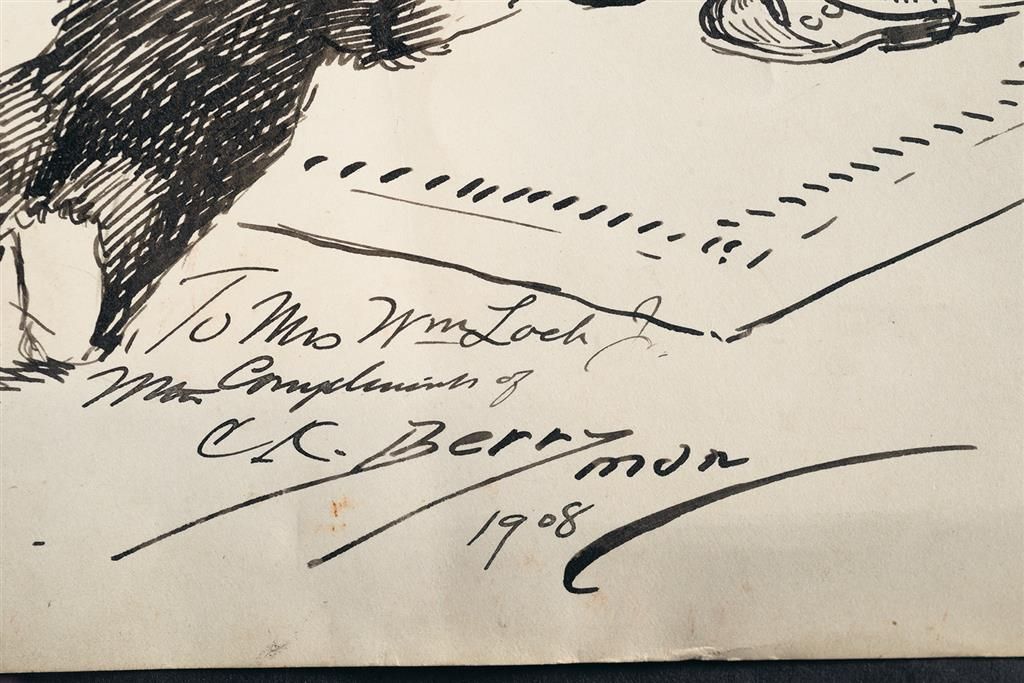 To Mrs Wm Loch Jr.
Compliments of
C.K. Berryman
1908